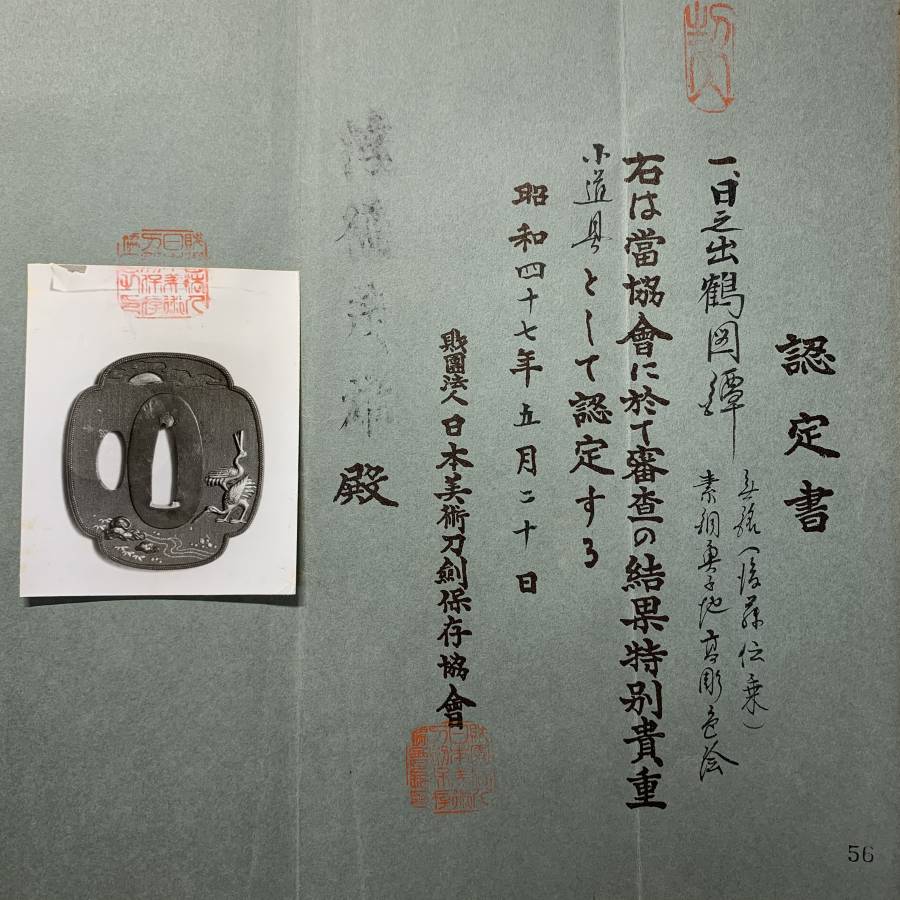 認定書
一、日之出鶴図鐔
無銘(後藤伝乗)
素銅魚子地高彫色絵
右は當協會に於て審査の結果特別貴重
小道具として認定する
昭和四十七年五月二十日
財團法人日本美術刀劍保存協會
殿
56